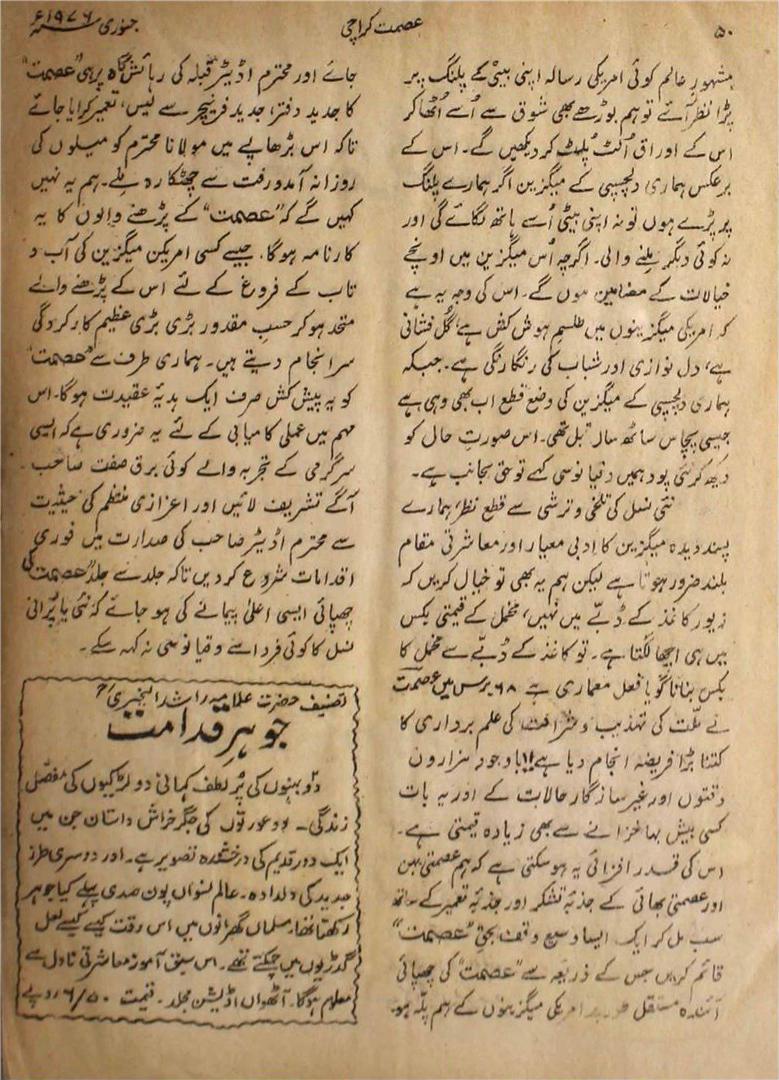 ۵۰
عصمت کراچی
جنوری سنہ ۱۹۷۶ء
مشہور عالم کوئی امریکی رسالہ اپنی بیٹی کے پلنگ پر
پڑا نظر آئے تو ہم بوڑھے بھی شوق سے اُسے اُٹھا کر
اس کے اوراق اُلٹ پُلٹ کر دیکھیں گے۔ اس کے
برعکس ہماری دلچسپی کے میگزین اگر ہمارے پلنگ
پر پڑے ہوں تو نہ اپنی بیٹی اُسے ہاتھ لگائے گی اور
نہ کوئی دیگر ملنے والی۔ اگرچہ اُس میگزین میں اونچے
خیالات کے مضامین ہوں گے۔ اس کی وجہ یہ ہے
کہ امریکی میگزینوں میں طلسم ہوش کش ہے، گُل فشانی
ہے، دل نوازی اور شباب کی رنگا رنگی ہے۔ جبکہ
ہماری دلچسپی کے میگزین کی وضع قطع اب بھی وہی ہے
جیسی پچاس ساٹھ سال قبل تھی۔ اس صورتِ حال کو
دیکھ کر نئی پود ہمیں دقیانوسی کہے تو حق بجانب ہے۔
نئی نسل کی تلخی و ترشی سے قطع نظر، ہمارے
پسندیدہ میگزین کا ادبی معیار اور معاشرتی مقام
بلند ضرور ہوتا ہے لیکن ہم یہ بھی تو خیال کریں کہ
زیور کاغذ کے ڈبّے میں نہیں، مخمل کے قیمتی بکس
میں ہی اچھا لگتا ہے۔ تو کاغذ کے ڈبّے سے مخمل کا
بکس بنانا گویا فعل معماری ہے ۶۸ برس میں عصمت
نے ملّت کی تہذیب و شرافت کی علم برداری کا
کتنا بڑا فریضہ انجام دیا ہے!! باوجود ہزاروں
دقتوں اور غیر سازگار حالات کے اور یہ بات
کسی بیش بہا خزانے سے بھی زیادہ قیمتی ہے۔
اس کی قدر افزائی یہ ہو سکتی ہے کہ ہم عصمتی بہن
اور عصمتی بھائی کے جذبۂ تشکر اور جذبۂ تعمیر کے ساتھ
سب مل کر ایک ایسا وسیع وقف بحق "عصمت"
قائم کریں جس کے ذریعہ سے "عصمت" کی چھپائی
آئندہ مستقل طور پر امریکی میگزینوں کے ہم پلّہ ہو
جائے اور محترم اڈیٹر قبلہ کی رہائش گاہ پر ہی "عصمت"
کا جدید دفتر، جدید فرنیچر سے لیس، تعمیر کرایا جائے
تاکہ اس بڑھاپے میں مولانا محترم کو میلوں کی
روزانہ آمد و رفت سے چھٹکارہ ملے۔ ہم یہ نہیں
کہیں گے کہ "عصمت" کے پڑھنے والوں کا یہ
کارنامہ ہوگا۔ جیسے کسی امریکن میگزین کی آب و
تاب کے فروغ کے لئے اس کے پڑھنے والے
متحد ہو کر حسبِ مقدور بڑی بڑی عظیم کارکردگی
سرانجام دیتے ہیں۔ ہماری طرف سے "عصمت"
کو یہ پیش کش صرف ایک ہدیۂ عقیدت ہوگا۔ اس
مہم میں عملی کامیابی کے لئے یہ ضروری ہے کہ ایسی
سرگرمی کے تجربہ والے کوئی برق صفت صاحب
آگے تشریف لائیں اور اعزازی منتظم کی حیثیت
سے محترم اڈیٹر صاحب کی صدارت میں فوری
اقدامات شروع کر دیں تاکہ جلد سے جلد "عصمت" کی
چھپائی ایسی اعلیٰ پیمانے کی ہو جائے کہ نئی یا پُرانی
نسل کا کوئی فرد اسے دقیانوسی نہ کہہ سکے۔
تصنیف حضرت علامہ راشد الخیریؒ
جوہرِ قدامت
دو بہنوں کی پُر لطف کہانی دو لڑکیوں کی مفصّل
زندگی۔ دو عورتوں کی جگر خراش داستان جن میں
ایک دور قدیم کی درخشندہ تصویر ہے۔ اور دوسری طرز
جدید کی دلدادہ۔ عالم نسواں پون صدی پہلے کیا جوہر
رکھتا تھا، مسلمان گھرانوں میں اس وقت کیسے کیسے لعل
گدڑیوں میں چمکتے تھے۔ اس سبق آموز معاشرتی ناول سے
معلوم ہوگا۔ آٹھواں اڈیشن مجلد۔ قیمت ۶/۵۰ روپے